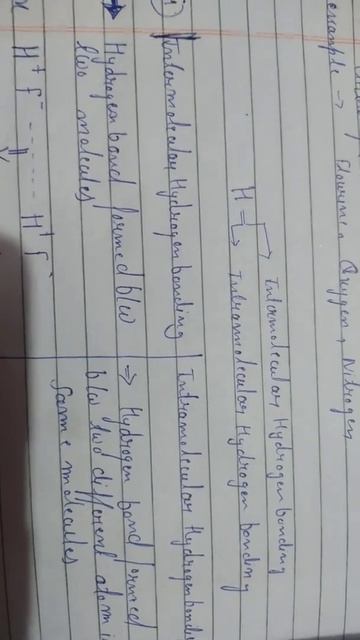 example → Flourine, Oxygen, Nitrogen
Intermolecular Hydrogen bonding
H
Intramolecular Hydrogen bonding
(i) Intermolecular Hydrogen bonding
Intramolecular Hydrogen bondi
Hydrogen bond formed b/w
two molecules
⇒ Hydrogen bond formed
b/w two different atom i
same molecules
H⁺ f⁻ ------ H⁺ f⁻